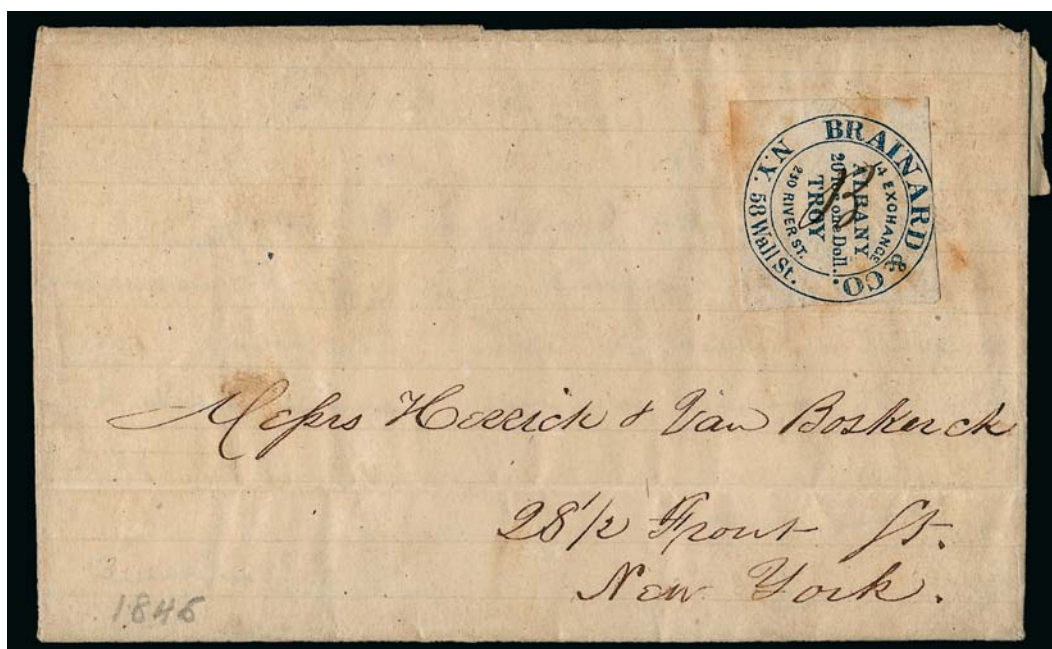 BRAINARD & CO.
N.Y. 58 Wall St.
14 EXCHANGE
ALBANY
20 for one Doll.
TROY
230 RIVER ST.
B
Messrs Herrick & Van Boskerck
28 1/2 Front St.
New York.
1845